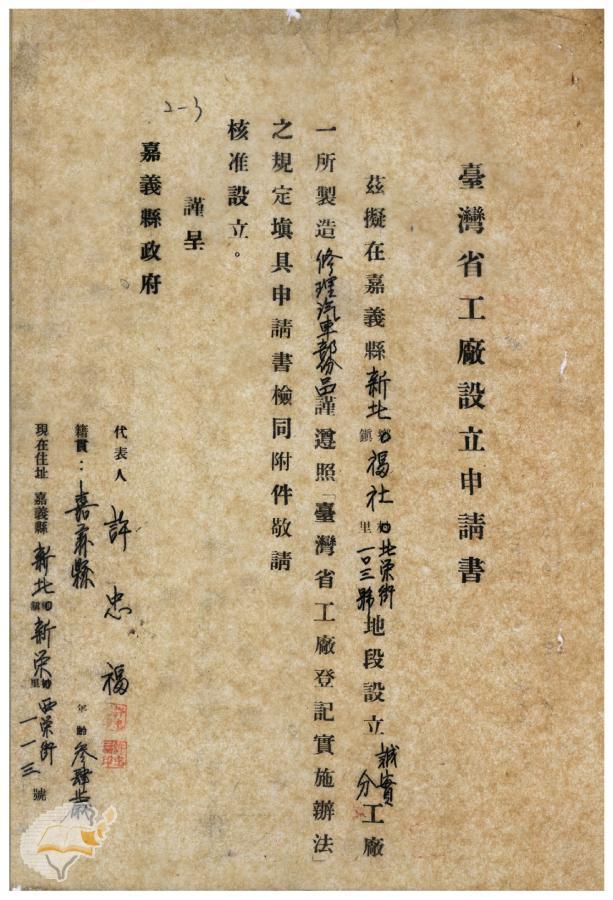 臺灣省工廠設立申請書
茲擬在嘉義縣新北鎮福社里北榮街一〇三號地段設立誠實分工廠
一所製造修理汽車部份品謹遵照「臺灣省工廠登記實施辦法」
之規定填具申請書檢同附件敬請
核准設立。
謹呈
嘉義縣政府
2-3
代表人 許忠福
籍貫：嘉義縣 年齡參肆歲
現在住址 嘉義縣新北鎮新榮里西榮街一一三號